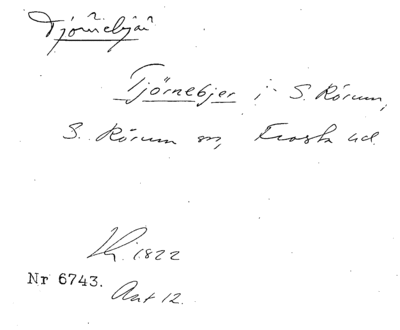 Tjörnebjär
Tjörnebjer i S. Rörum,
S. Rörum sn, Frosta hd
1822
Nr 6743.
Ant 12.